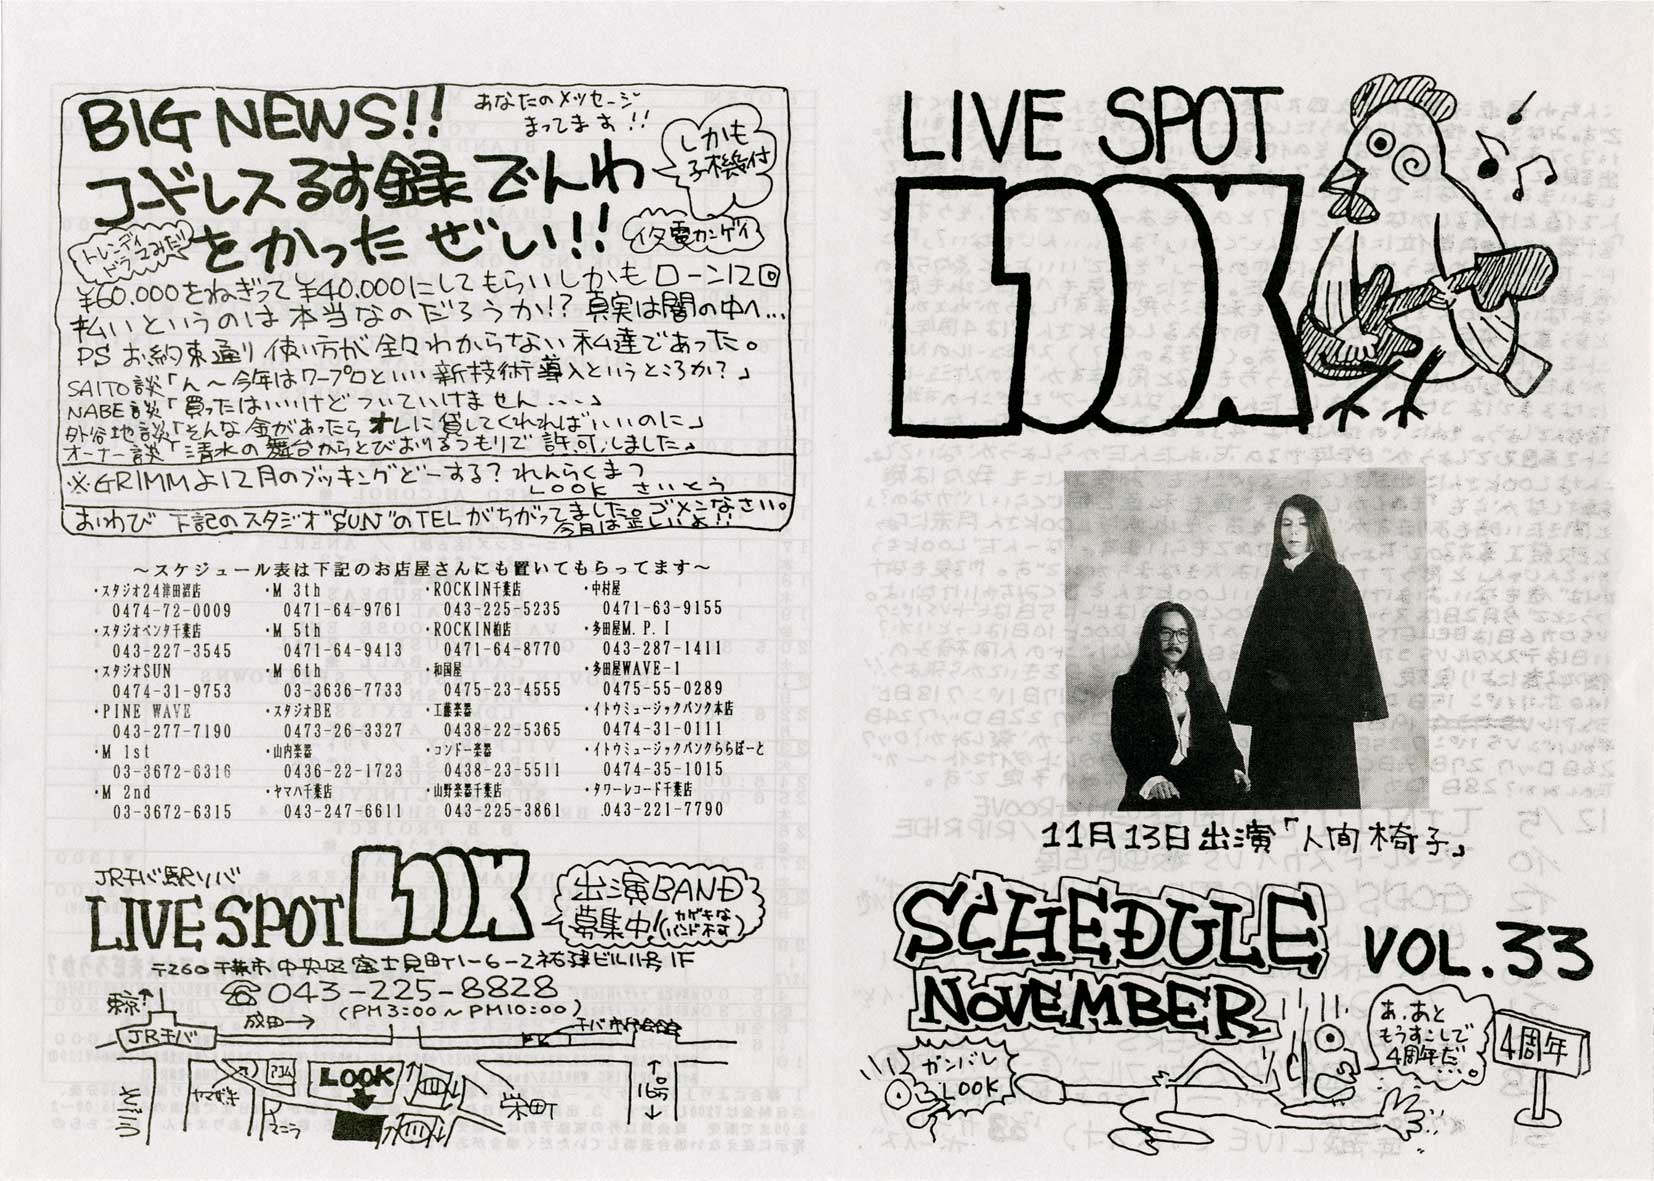 BIG NEWS!!
あなたのメッセージ
まってます!!
コードレスるす録でんわ
をかったぜい!!
しかも
子機付
イタ電カンゲイ
トレンディ
ドラマみたい
¥60.000をねぎって¥40.000にしてもらいしかもローン12回
払いというのは本当なのだろうか!?真実は闇の中へ...
PSお約束通り使い方が全々わからない私達であった。
SAITO談「ん〜今年はワープロといい新技術導入というところか?」
NABE談「買ったはいいけどついていけません....」
外谷地談「そんな金があったらオレに貸してくれればいいのに」
オーナー談「清水の舞台からとびおりるつもりで許可しました。」
※GRIMMより12月のブッキングどーする?れんらくまつ
LOOK さいとう
おわび 下記のスタジオ"SUN"のTELがちがってました。ゴメンなさい。
今月は正しいよ!!
〜スケジュール表は下記のお店屋さんにも置いてもらってます〜
・スタジオ24津田沼店 ・M 3th ・ROCKIN千葉店 ・中村屋
0474-72-0009 0471-64-9761 043-225-5235 0471-63-9155
・スタジオペンタ千葉店 ・M 5th ・ROCKIN柏店 ・多田屋M.P.I
043-227-3545 0471-64-9413 0471-64-8770 043-287-1411
・スタジオSUN ・M 6th ・和国屋 ・多田屋WAVE-1
0474-31-9753 03-3636-7733 0475-23-4555 0475-55-0289
・PINE WAVE ・スタジオBE ・工藤楽器 ・イトウミュージックバンク本店
043-277-7190 0473-26-3327 0438-22-5365 0474-31-0111
・M 1st ・山内楽器 ・コンドー楽器 ・イトウミュージックバンクららぽーと
03-3672-6316 0436-22-1723 0438-23-5511 0474-35-1015
・M 2nd ・ヤマハ千葉店 ・山野楽器千葉店 ・タワーレコード千葉店
03-3672-6315 043-247-6611 043-225-3861 043-221-7790
JRチバ駅ソバ
LIVE SPOT LOOK
出演BAND
募集中!(カゲキなバンド不可)
〒260千葉市中央区富士見町1-6-2祐建ビル11号1F
☎043-225-8828
(PM3:00〜PM10:00)
東京↑
成田→
JRチバ
チバ市民会館
LOOK
ヤマザキ
栄町
←16号→
LIVE SPOT
LOOK
11月13日出演「人間椅子」
SCHEDULE VOL.33
NOVEMBER
ガンバレ
LOOK
あ、あと
もうすこしで
4周年だ...。
4周年